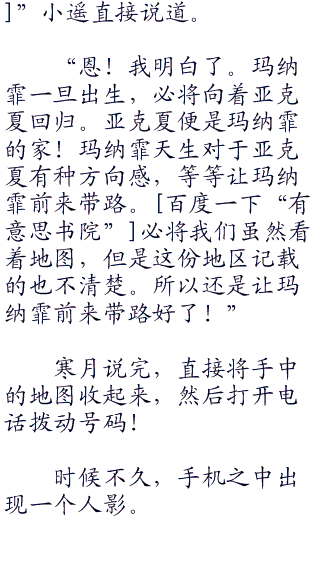 ]”小遥直接说道。
“恩！我明白了。玛纳
霏一旦出生，必将向着亚克
夏回归。亚克夏便是玛纳霏
的家！玛纳霏天生对于亚克
夏有种方向感，等等让玛纳
霏前来带路。[百度一下“有
意思书院”]必将我们虽然看
着地图，但是这份地区记载
的也不清楚。所以还是让玛
纳霏前来带路好了！”
寒月说完，直接将手中
的地图收起来，然后打开电
话拨动号码！
时候不久，手机之中出
现一个人影。